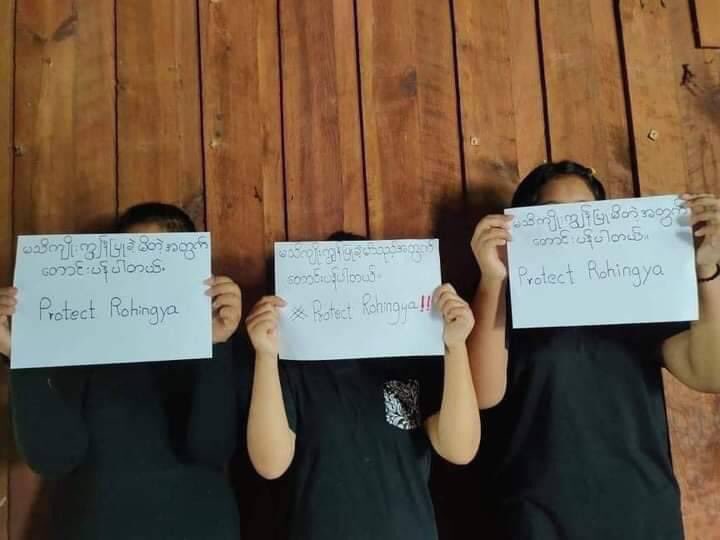 မသိကျိုးကျွန်ပြုခဲ့မိတဲ့ အတွက်
တောင်းပန်ပါတယ်.
Protect Rohingya
မသိကျိုးကျွန်ပြုခဲ့မိသည့်အတွက်
တောင်းပန်ပါတယ်။
Protect Rohingya!!
မသိကျိုးကျွန်ပြုမိတဲ့ အတွက်
တောင်းပန်ပါတယ်။
Protect Rohingya